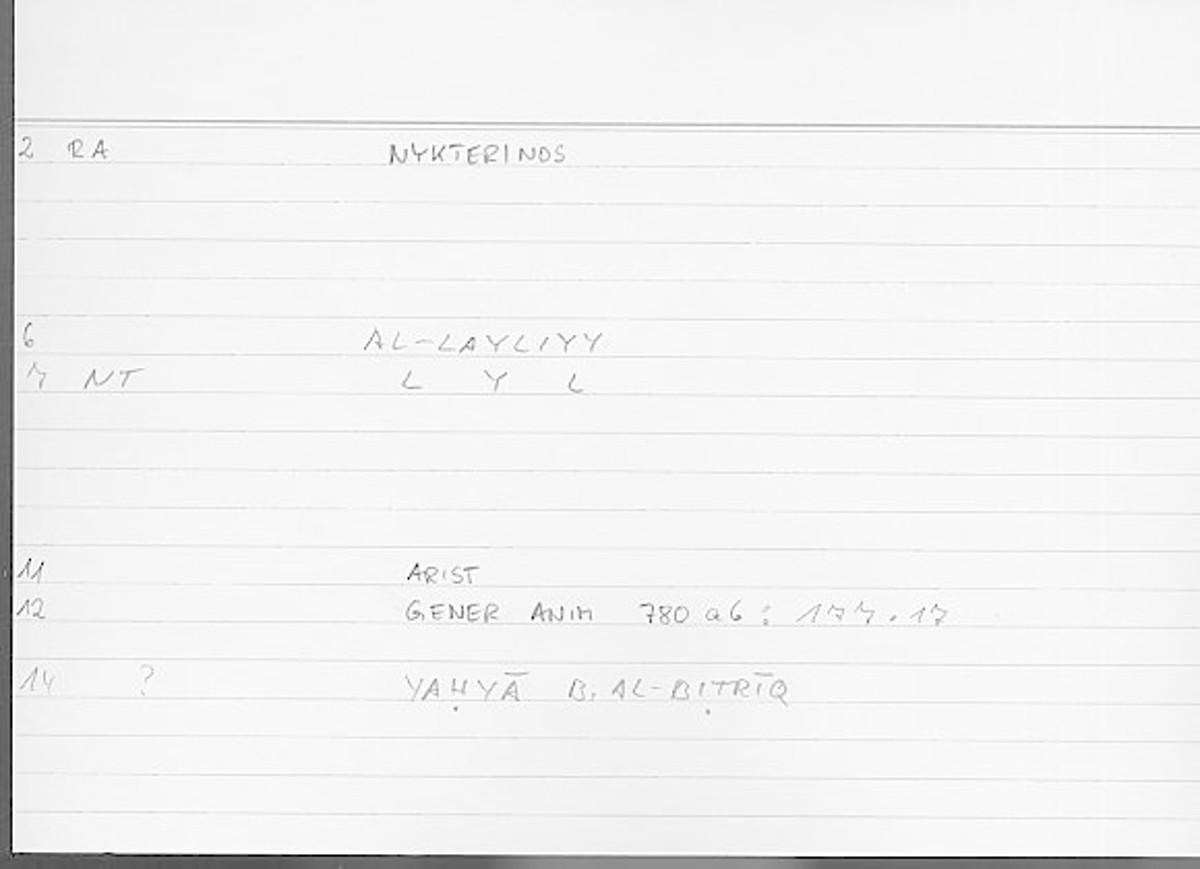 2 RA NYKTERINOS
6 AL-LAYLIYY
7 NT L Y L
11 ARIST
12 GENER ANIM 780 a 6 : 177.17
14 ? YAḤYĀ B. AL-BIṬRĪQ